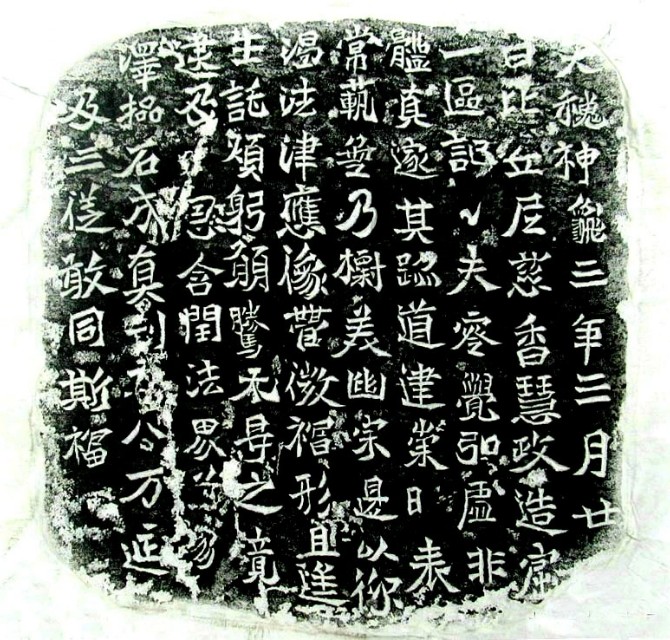 大魏神龜三年三月廿
日比丘尼慈香慧政造窟
一區記之夫零覺弘虛非
體真邃其跡道建崇日表
常軌無乃標美幽宗是以仰
渴法津應像營微福形且遙
生託煩躬願騰无㝵之境
逮及恩含潤法界
澤石成真刊八万延
及三從敢同斯福